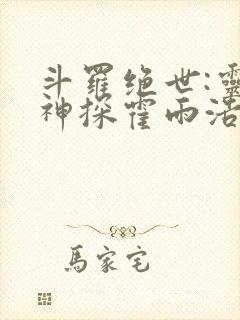 斗羅绝世:靈
神探霍雨浩
馬家宅